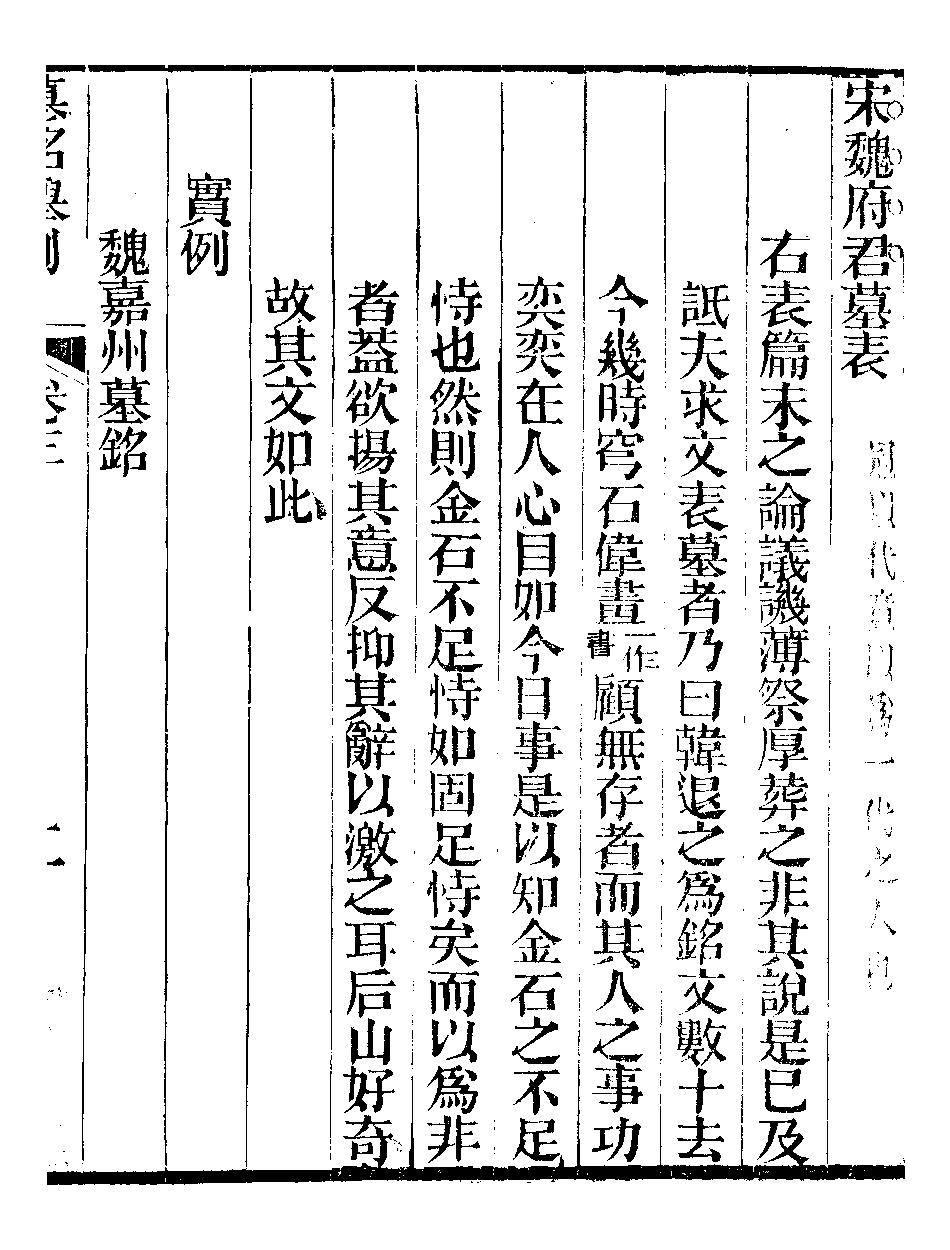 宋魏府君墓表
右表篇末之論議譏薄祭厚葬之非其說是已及
詆夫求文表墓者乃曰韓退之爲銘文數十去
今幾時穹石偉畫一作書顧無存者而其人之事功
奕奕在人心目如今日事是以知金石之不足
恃也然則金石不足恃如固足恃矣而以爲非
者葢欲揚其意反抑其辭以激之耳后山好奇
故其文如此
實例
魏嘉州墓銘
墓銘舉例 卷三